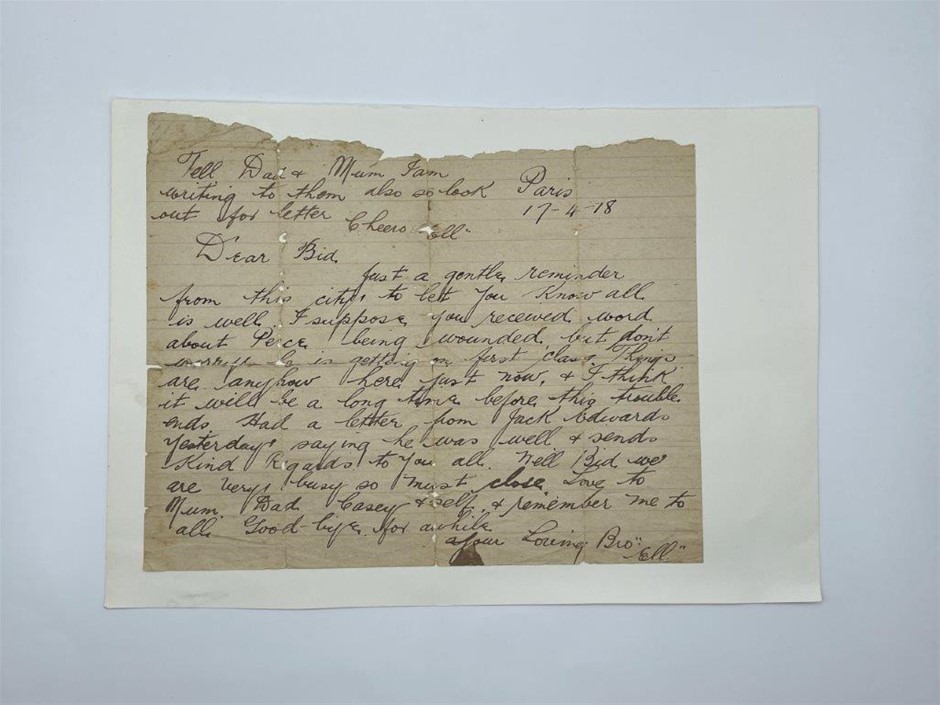 Tell Dad & Mum I am
writing to them also so look
out for letter
Cheero "Ell"
Paris
17-4-18
Dear Bid
Just a gentle reminder
from this city, to let you know all
is well. I suppose you receved word
about Perce being wounded, but don't
worry he is getting on first class. Things
are anyhow here just now, & I think
it will be a long time before this trouble
ends. Had a letter from Jack Edwards
yesterday saying he was well & sends
Kind Regards to you all. Well Bid we
are very busy so must close. Love to
Mum, Dad, Casey & self, & remember me to
all. Good bye for awhile
your Loving Bro"
"Ell"